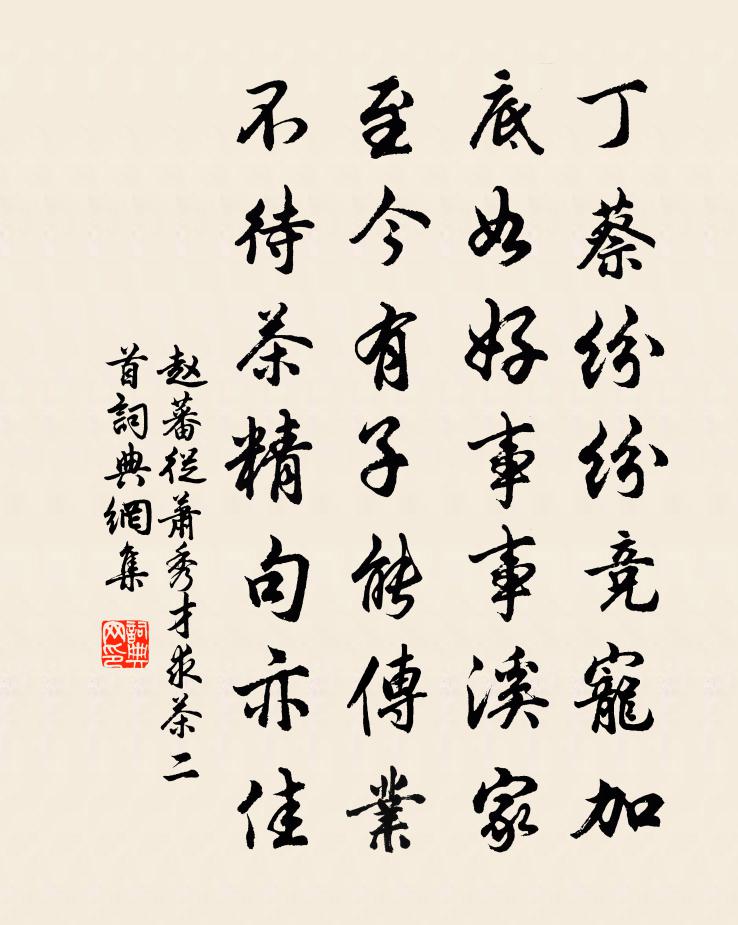 丁蔡紛紛竞寵加
底如好事事溪家
至今有子能傳業
不待茶精句亦佳
赵蕃從蕭秀才求茶二
首詞典網集
詞典
网印